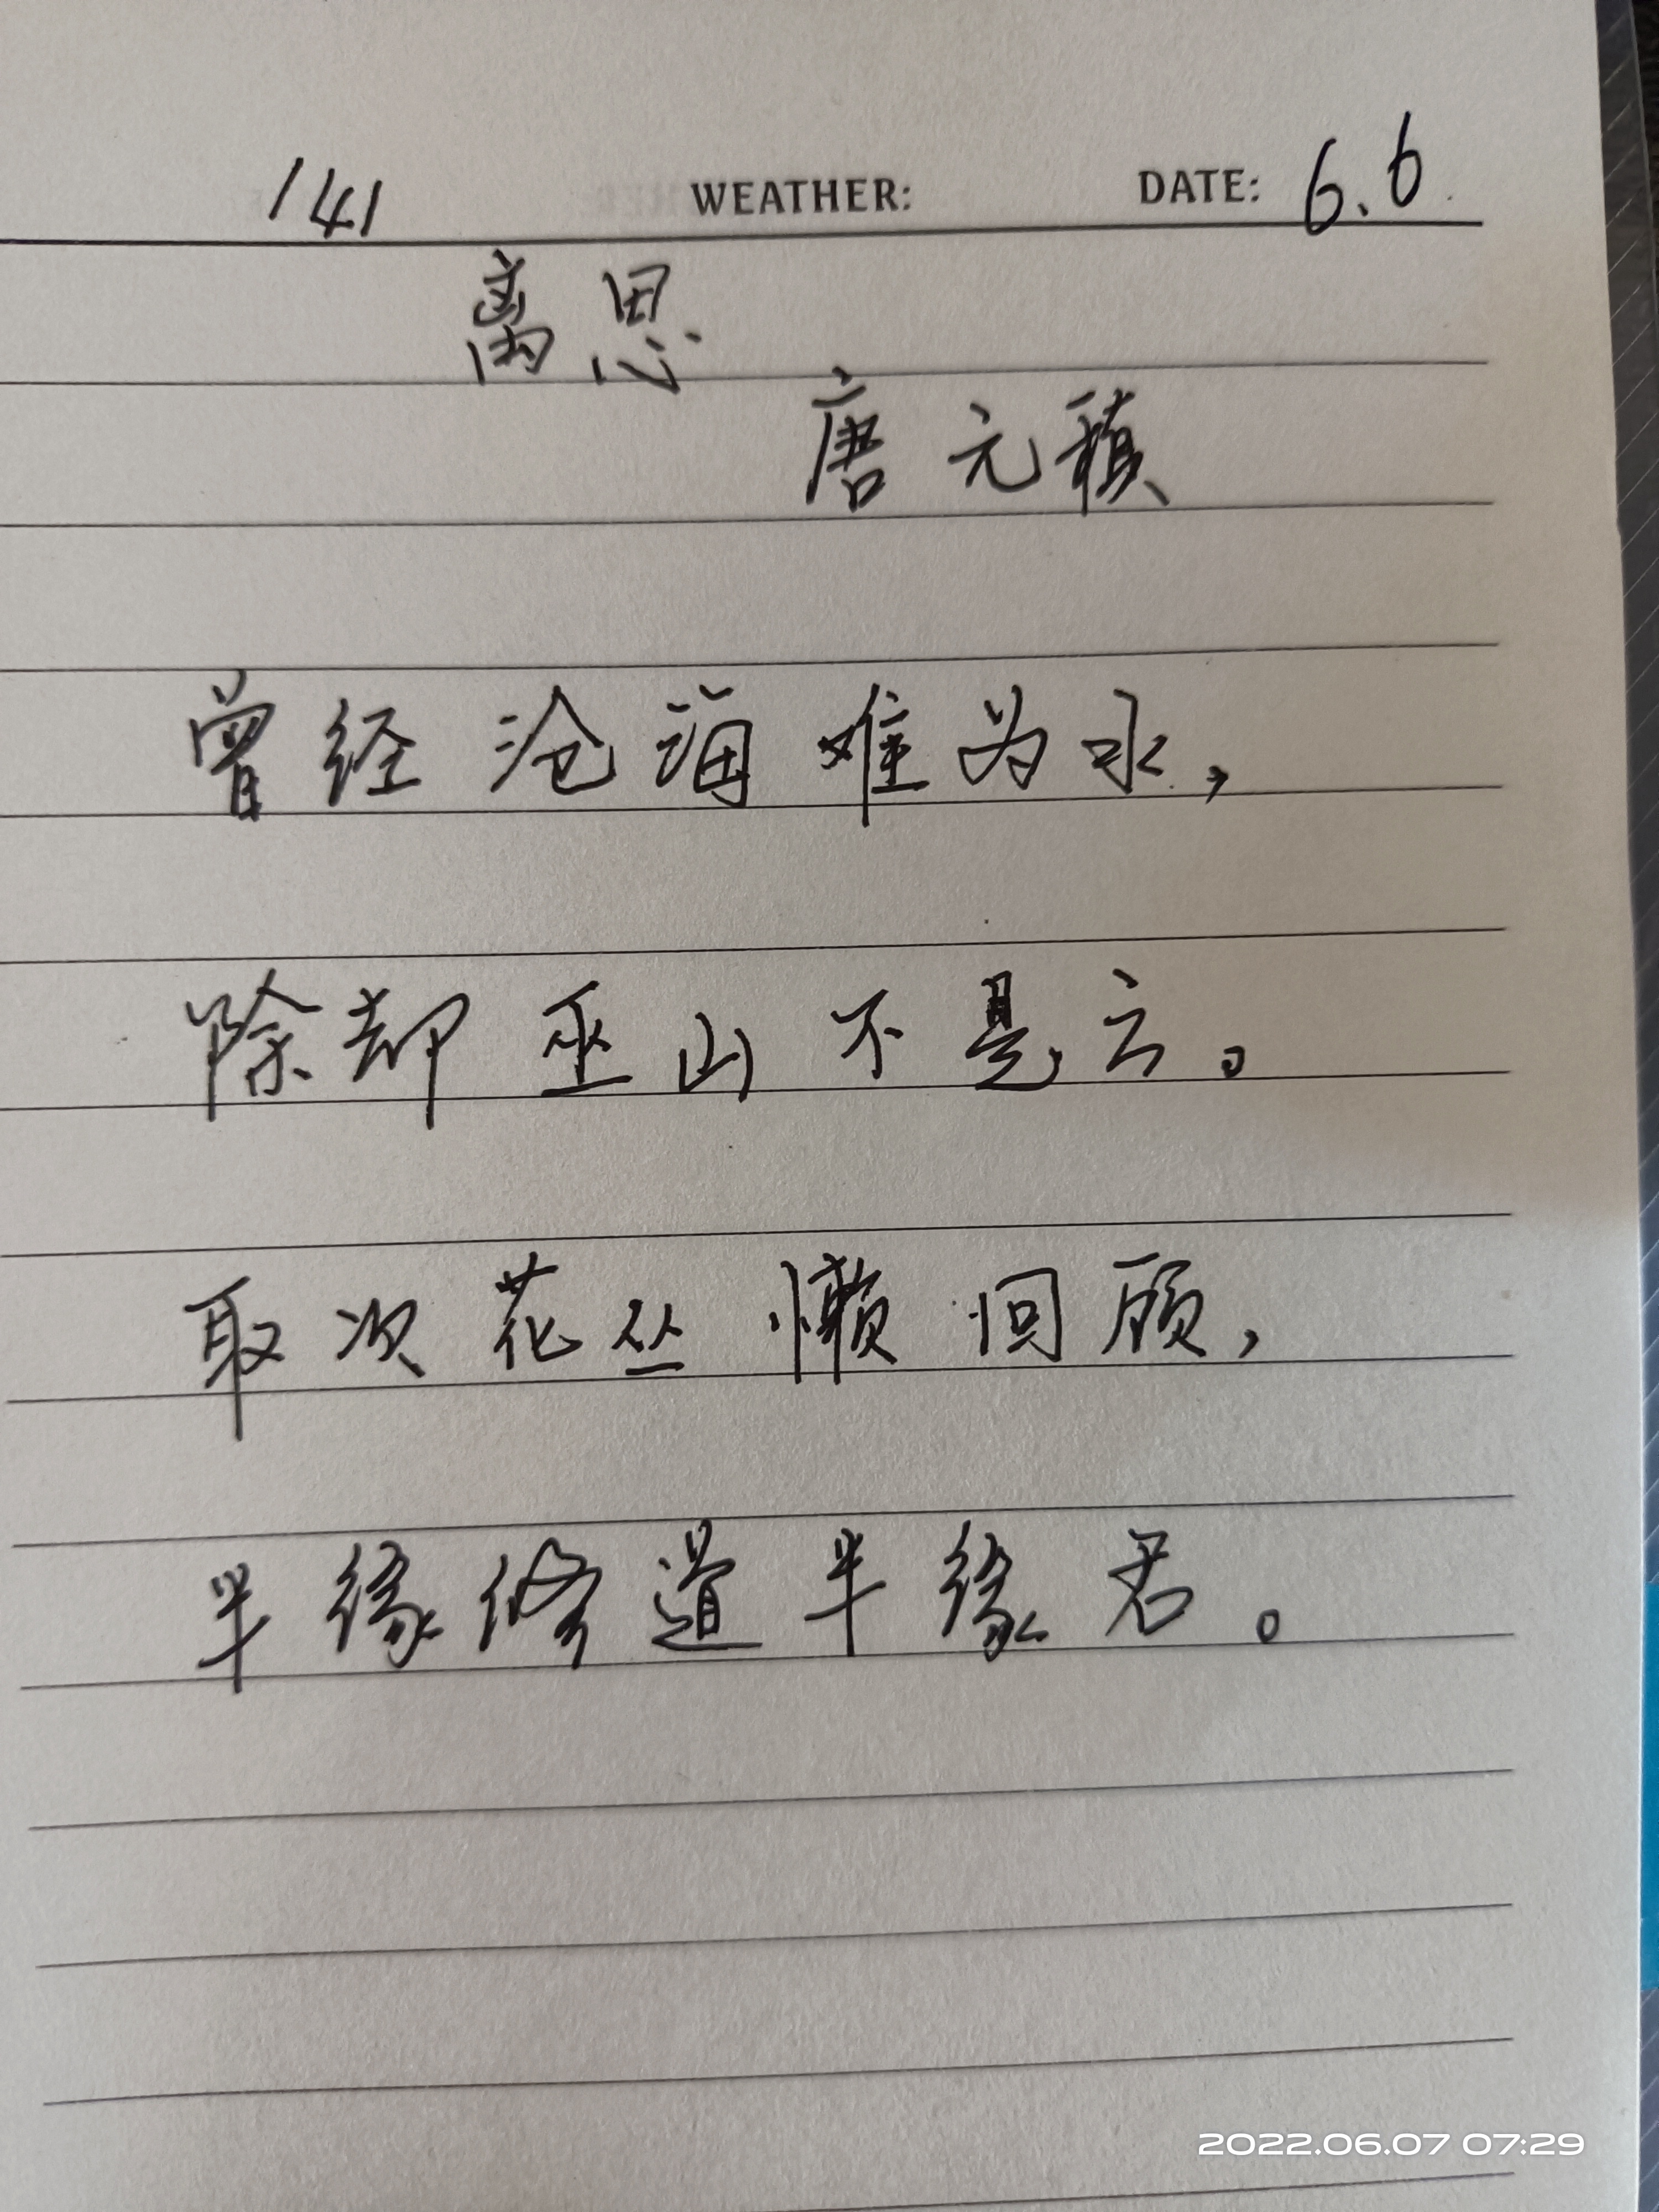 141 WEATHER: DATE: 6.6
离思
唐 元稹
曾经沧海难为水，
除却巫山不是云。
取次花丛懒回顾，
半缘修道半缘君。
2022.06.07 07:29